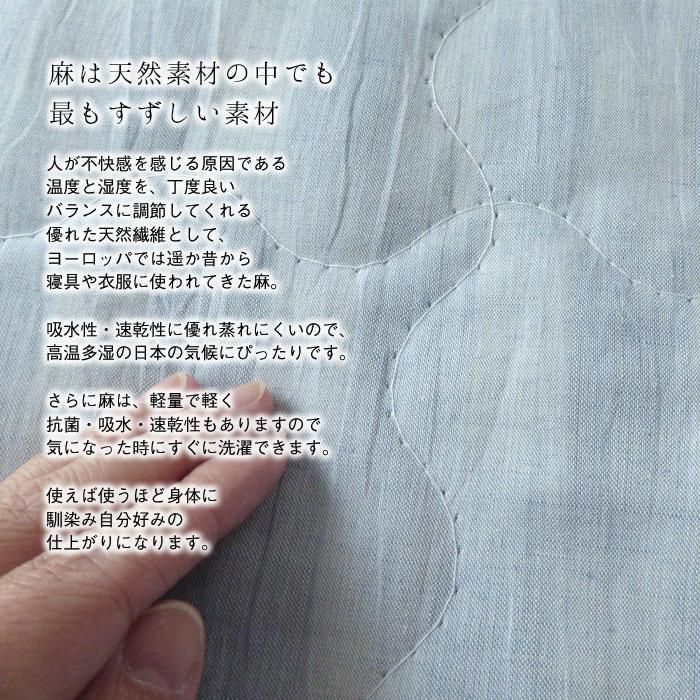 麻は天然素材の中でも
最もすずしい素材
人が不快感を感じる原因である
温度と湿度を、丁度良い
バランスに調節してくれる
優れた天然繊維として、
ヨーロッパでは遥か昔から
寝具や衣服に使われてきた麻。
吸水性・速乾性に優れ蒸れにくいので、
高温多湿の日本の気候にぴったりです。
さらに麻は、軽量で軽く
抗菌・吸水・速乾性もありますので
気になった時にすぐに洗濯できます。
使えば使うほど身体に
馴染み自分好みの
仕上がりになります。